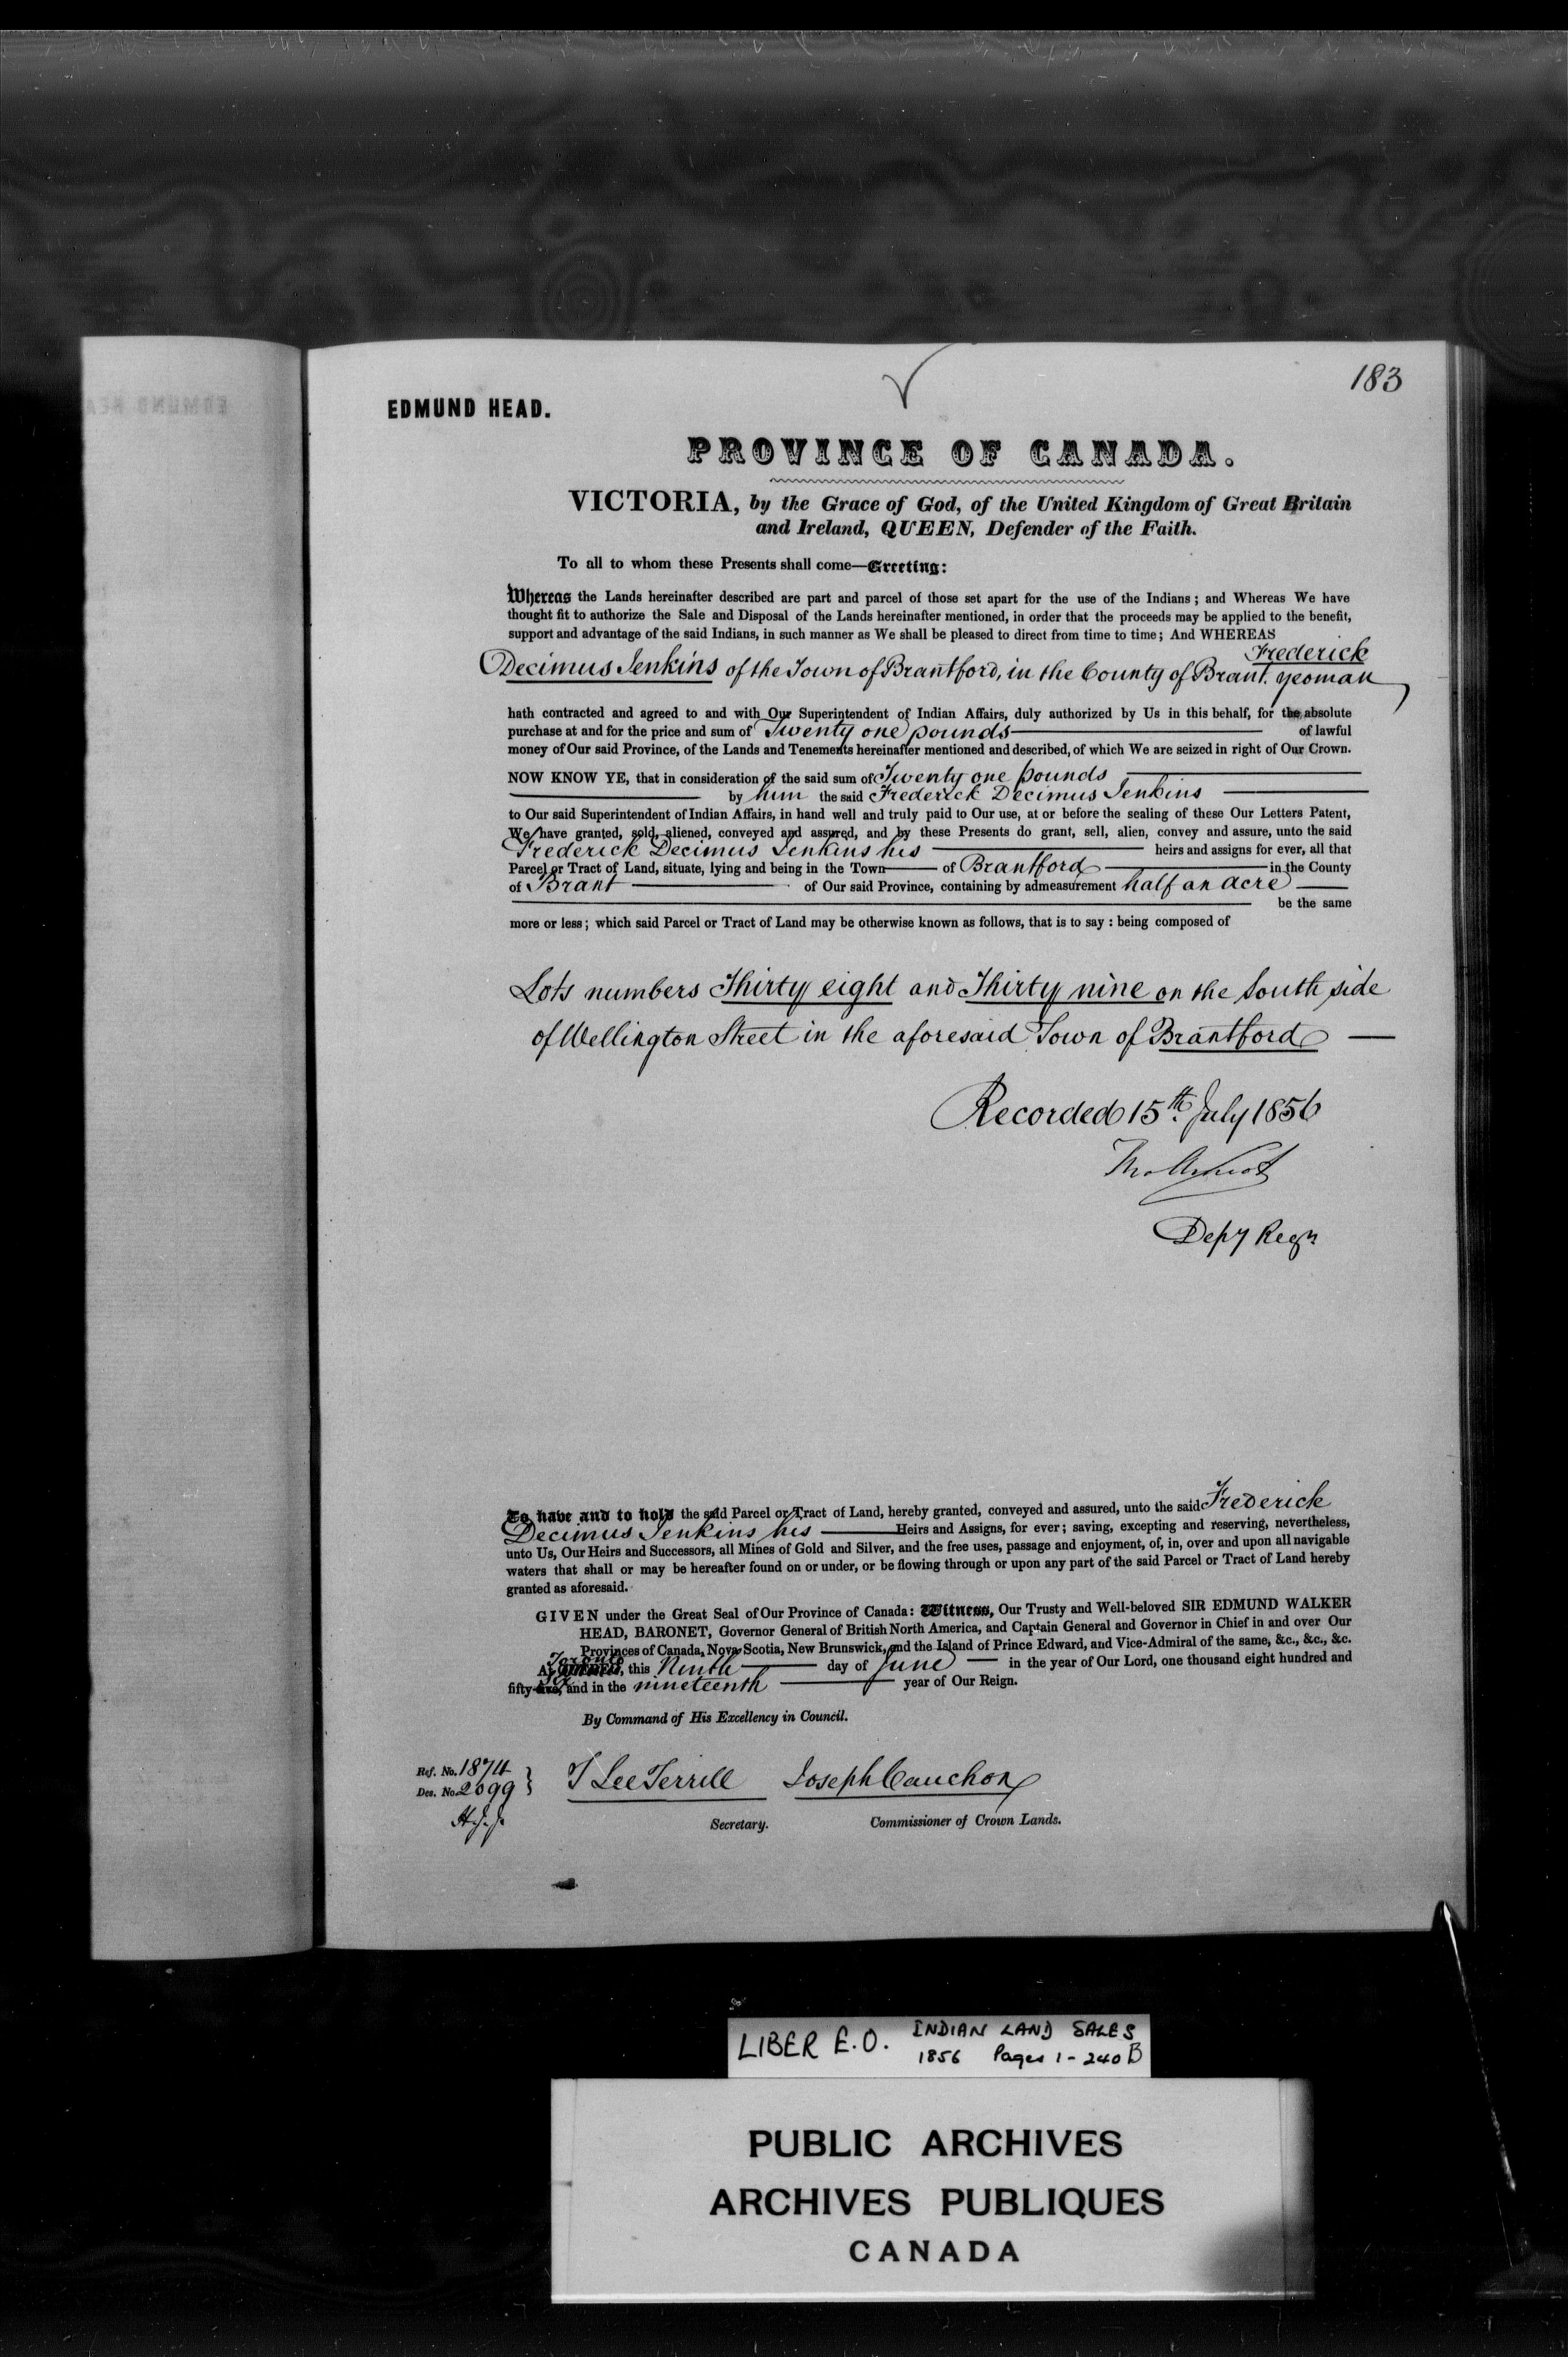 183
EDMUND HEAD.
PROVINCE OF CANADA.
VICTORIA, by the Grace of God, of the United Kingdom of Great Britain
and Ireland, QUEEN, Defender of the Faith.
To all to whom these Presents shall come—Greeting:
Whereas the Lands hereinafter described are part and parcel of those set apart for the use of the Indians; and Whereas We have
thought fit to authorize the Sale and Disposal of the Lands hereinafter mentioned, in order that the proceeds may be applied to the benefit,
support and advantage of the said Indians, in such manner as We shall be pleased to direct from time to time; And WHEREAS
Frederick
Decimus Jenkins of the Town of Brantford, in the County of Brant. yeoman,
hath contracted and agreed to and with Our Superintendent of Indian Affairs, duly authorized by Us in this behalf, for the absolute
purchase at and for the price and sum of Twenty one pounds of lawful
money of Our said Province, of the Lands and Tenements hereinafter mentioned and described, of which We are seized in right of Our Crown.
NOW KNOW YE, that in consideration of the said sum of Twenty one pounds
by him the said Frederick Decimus Jenkins
to Our said Superintendent of Indian Affairs, in hand well and truly paid to Our use, at or before the sealing of these Our Letters Patent,
We have granted, sold, aliened, conveyed and assured, and by these Presents do grant, sell, alien, convey and assure, unto the said
Frederick Decimus Jenkins his heirs and assigns for ever, all that
Parcel or Tract of Land, situate, lying and being in the Town of Brantford in the County
of Brant of Our said Province, containing by admeasurement half an acre
be the same
more or less; which said Parcel or Tract of Land may be otherwise known as follows, that is to say: being composed of
Lots numbers Thirty eight and Thirty nine on the South side
of Wellington Street in the aforesaid Town of Brantford —
Recorded 15th July 1856
Depy Regr
To have and to hold the said Parcel or Tract of Land, hereby granted, conveyed and assured, unto the said Frederick
Decimus Jenkins his Heirs and Assigns, for ever; saving, excepting and reserving, nevertheless,
unto Us, Our Heirs and Successors, all Mines of Gold and Silver, and the free uses, passage and enjoyment, of, in, over and upon all navigable
waters that shall or may be hereafter found on or under, or be flowing through or upon any part of the said Parcel or Tract of Land hereby
granted as aforesaid.
GIVEN under the Great Seal of Our Province of Canada: Witness, Our Trusty and Well-beloved SIR EDMUND WALKER
HEAD, BARONET, Governor General of British North America, and Captain General and Governor in Chief in and over Our
Provinces of Canada, Nova Scotia, New Brunswick, and the Island of Prince Edward, and Vice-Admiral of the same, &c., &c., &c.
At Toronto, this Ninth day of June in the year of Our Lord, one thousand eight hundred and
fifty-six, and in the nineteenth year of Our Reign.
By Command of His Excellency in Council.
Ref. No. 1874
Des. No. 2699
T Lee Terrill Joseph Cauchon
Secretary. Commissioner of Crown Lands.
LIBER E.O. INDIAN LAND SALES
1856 Pages 1-240 B
PUBLIC ARCHIVES
ARCHIVES PUBLIQUES
CANADA